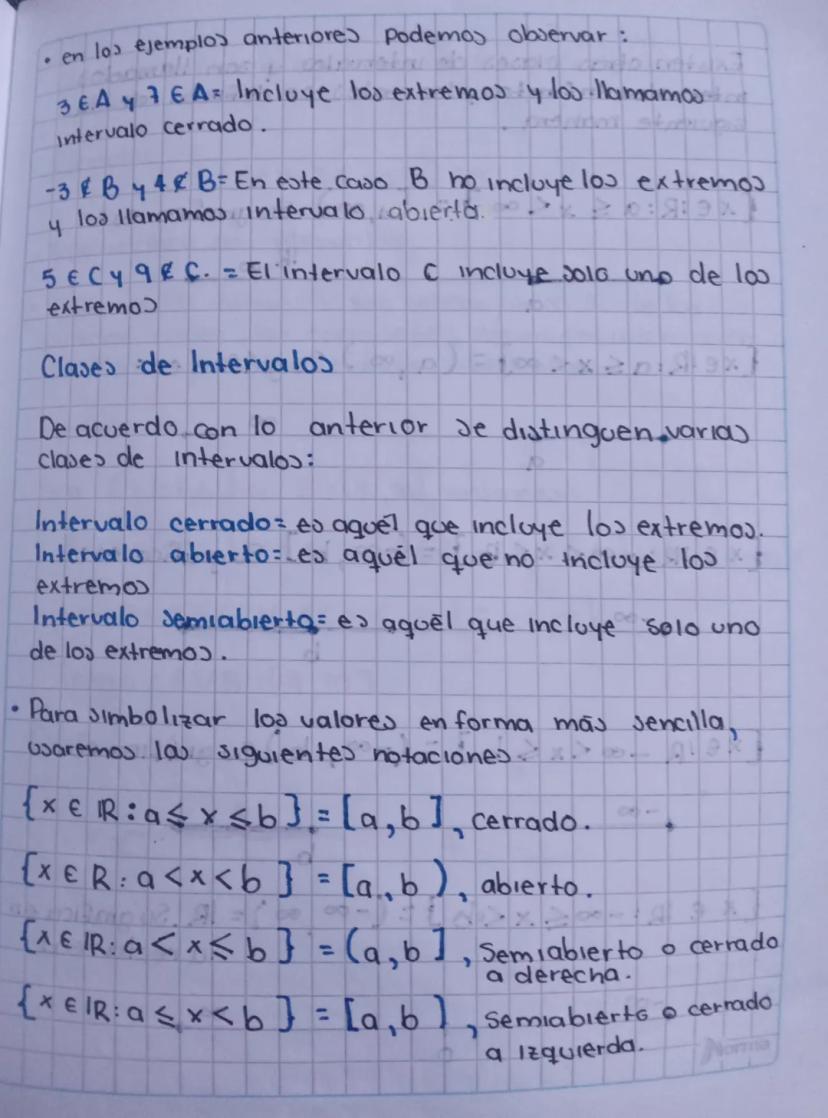 • en los ejemplos anteriores podemos observar:
3 ∈ A y 7 ∈ A = Incluye los extremos y los llamamos
intervalo cerrado.
-3 ∉ B y 4 ∉ B = En este caso B no incluye los extremos
y los llamamos intervalo abierto.
5 ∈ C y 9 ∉ C. = El intervalo C incluye solo uno de los
extremos
Clases de Intervalos
De acuerdo con lo anterior se distinguen varias
clases de intervalos:
Intervalo cerrado = es aquél que incluye los extremos.
Intervalo abierto = es aquél que no incluye los
extremos
Intervalo semiabierto = es aquél que incluye solo uno
de los extremos.
• Para simbolizar los valores en forma más sencilla,
usaremos las siguientes notaciones
{x ∈ ℝ : a ≤ x ≤ b} = [a, b], cerrado.
{x ∈ R : a < x < b} = [a, b), abierto.
{x ∈ ℝ : a < x ≤ b} = (a, b], Semiabierto o cerrado
a derecha.
{x ∈ ℝ : a ≤ x < b} = [a, b), semiabierto o cerrado
a izquierda.
Norma